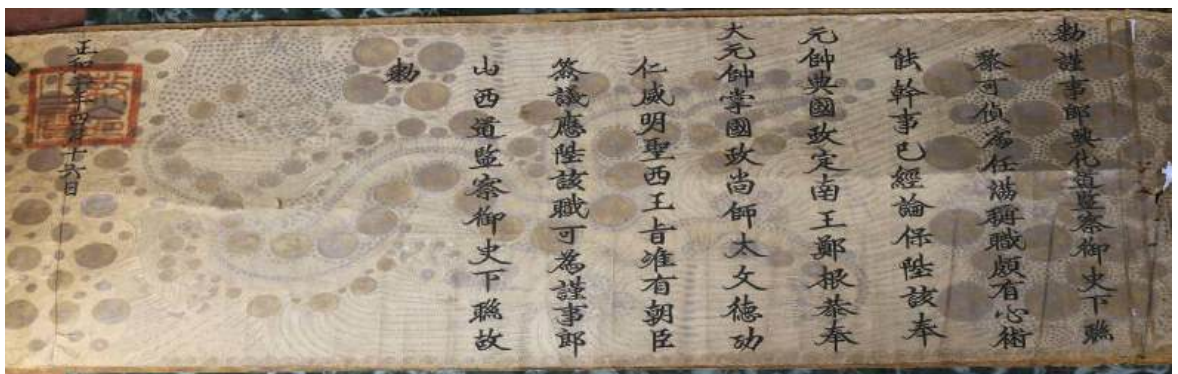 勅謹事郎興化道監察御史下聮
黎可偵為任滿稱職頗有心術
能幹事已經論保陞該奉
元帥典國政定南王鄭根恭奉
大元帥掌國政尚師太父德功
仁威明聖西王旨准有朝臣
僉議應陞該職可為謹事郎
山西道監察御史下聮故
勅
正和年四月十六日